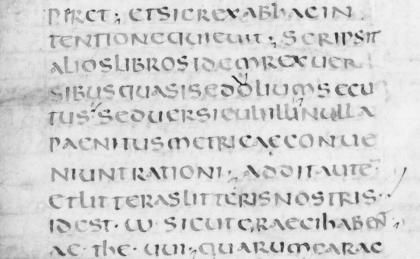 PIRET; ET SIC REX AB HAC IN
TENTIONE QUIEUIT; SCRIPSIT
ALIOS LIBROS IDEM REX UER
SIBUS QUASI SEDULIUM SECU
TUS SED UERSICULI ILLI NULLA
PAENITUS METRICAE CONUE
NIUNT RATIONI, ADDIT AUTE
ET LITTERAS LITTERIS NOSTRIS.
ID EST. W SICUT GRAECI HABENT
AE. the. UUI, QUARUM EARAC